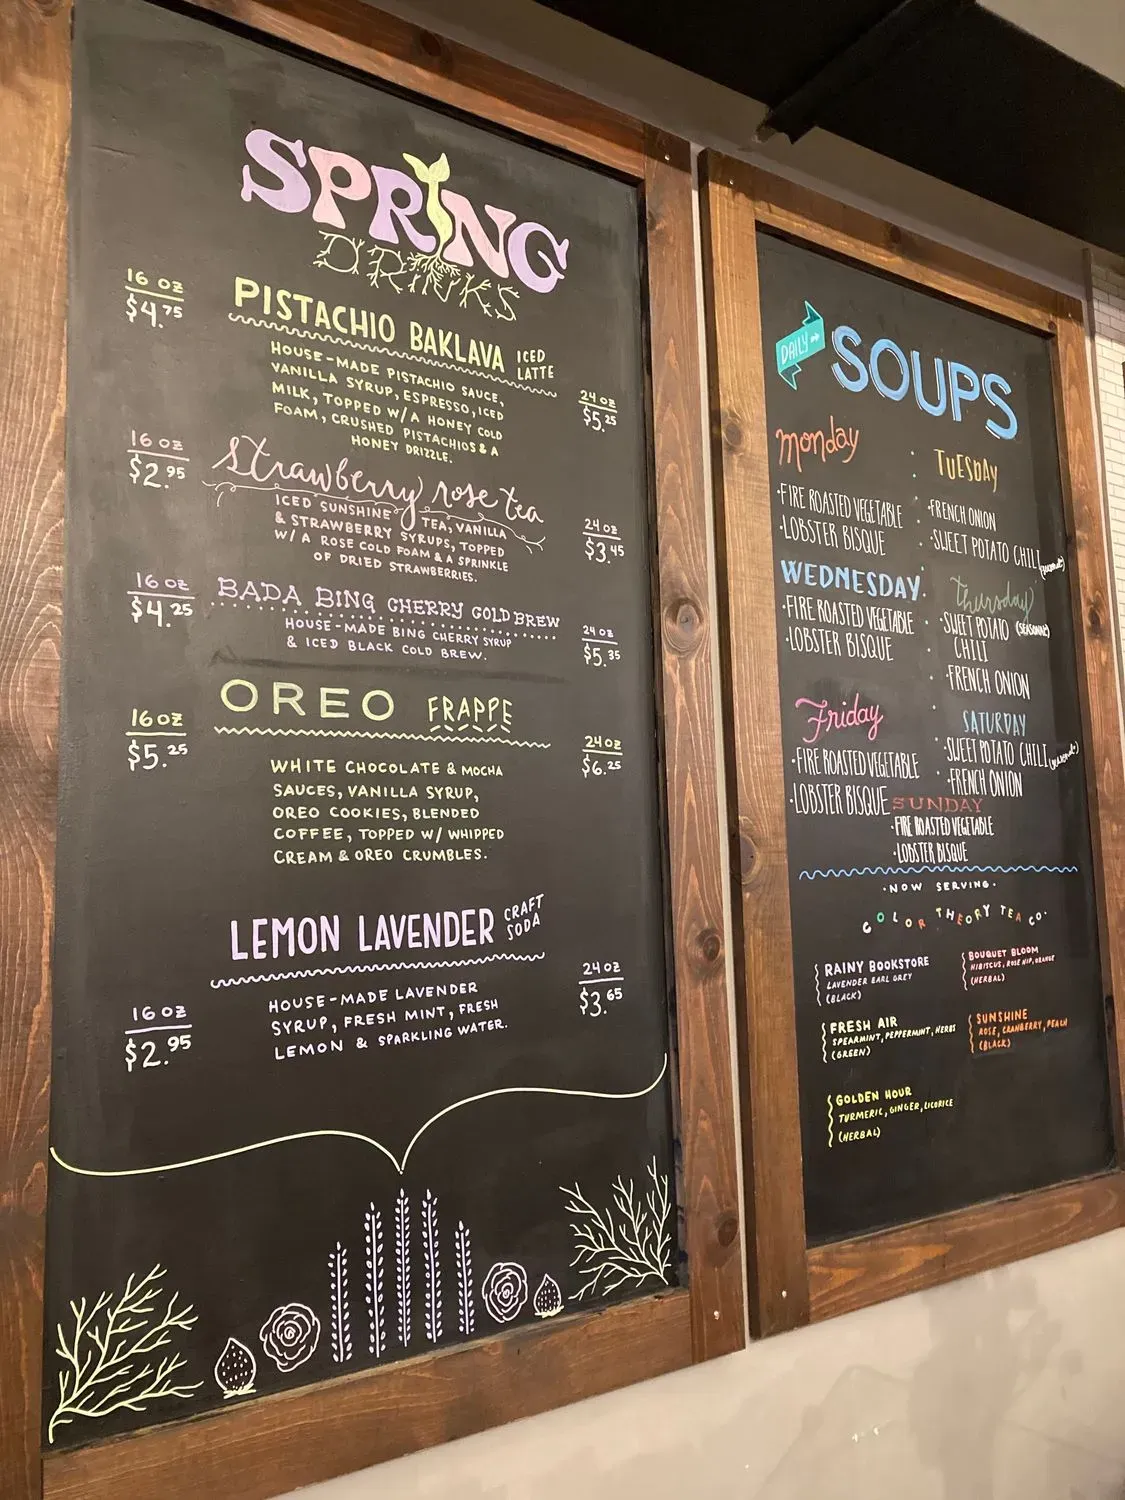 SPRING
DRINKS
16 OZ
$4.75
PISTACHIO BAKLAVA ICED LATTE
HOUSE-MADE PISTACHIO SAUCE,
VANILLA SYRUP, ESPRESSO, ICED
MILK, TOPPED W/ A HONEY COLD
FOAM, CRUSHED PISTACHIOS & A
HONEY DRIZZLE.
24 OZ
$5.25
16 OZ
$2.95
Strawberry rose tea
ICED SUNSHINE TEA, VANILLA
& STRAWBERRY SYRUPS, TOPPED
W/ A ROSE COLD FOAM & A SPRINKLE
OF DRIED STRAWBERRIES.
24 OZ
$3.45
16 OZ
$4.25
BADA BING CHERRY COLD BREW
HOUSE-MADE BING CHERRY SYRUP
& ICED BLACK COLD BREW.
24 OZ
$5.35
16 OZ
$5.25
OREO FRAPPE
WHITE CHOCOLATE & MOCHA
SAUCES, VANILLA SYRUP,
OREO COOKIES, BLENDED
COFFEE, TOPPED W/ WHIPPED
CREAM & OREO CRUMBLES.
24 OZ
$6.25
LEMON LAVENDER CRAFT SODA
16 OZ
$2.95
HOUSE-MADE LAVENDER
SYRUP, FRESH MINT, FRESH
LEMON & SPARKLING WATER.
24 OZ
$3.65
DAILY
SOUPS
monday
•FIRE ROASTED VEGETABLE
•LOBSTER BISQUE
TUESDAY
•FRENCH ONION
•SWEET POTATO CHILI
WEDNESDAY
•FIRE ROASTED VEGETABLE
•LOBSTER BISQUE
thursday
•SWEET POTATO (SEASONAL)
CHILI
•FRENCH ONION
Friday
•FIRE ROASTED VEGETABLE
•LOBSTER BISQUE
SATURDAY
•SWEET POTATO CHILI
•FRENCH ONION
SUNDAY
•FIRE ROASTED VEGETABLE
•LOBSTER BISQUE
•NOW SERVING•
COLOR THEORY TEA CO.
RAINY BOOKSTORE
LAVENDER EARL GREY
(BLACK)
BOUQUET BLOOM
HIBISCUS, ROSE HIP, ORANGE
(HERBAL)
FRESH AIR
SPEARMINT, PEPPERMINT, HERBS
(GREEN)
SUNSHINE
ROSE, CRANBERRY, PEACH
(BLACK)
GOLDEN HOUR
TURMERIC, GINGER, LICORICE
(HERBAL)